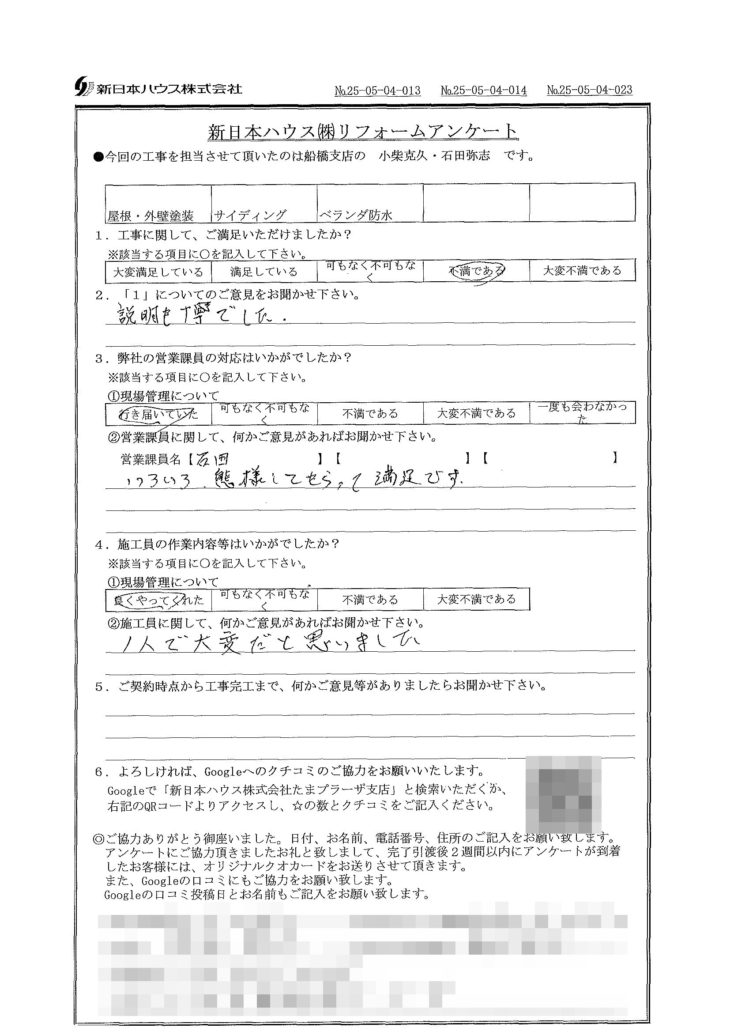 新日本ハウス株式会社
№25-05-04-013 №25-05-04-014 №25-05-04-023
新日本ハウス㈱リフォームアンケート
●今回の工事を担当させて頂いたのは船橋支店の 小柴克久・石田弥志 です。
屋根・外壁塗装 サイディング ベランダ防水
1．工事に関して、ご満足いただけましたか？
※該当する項目に○を記入して下さい。
大変満足している 満足している 可もなく不可もなく 不満である 大変不満である
2．「1」についてのご意見をお聞かせ下さい。
説明も丁寧でした.
3．弊社の営業課員の対応はいかがでしたか？
※該当する項目に○を記入して下さい。
①現場管理について
行き届いていた 可もなく不可もなく 不満である 大変不満である 一度も会わなかった
②営業課員に関して、何かご意見があればお聞かせ下さい。
営業課員名【石田 】【 】【 】
いろいろ 様してもらって満足です.
4．施工員の作業内容等はいかがでしたか？
※該当する項目に○を記入して下さい。
①現場管理について
良くやってくれた 可もなく不可もなく 不満である 大変不満である
②施工員に関して、何かご意見があればお聞かせ下さい。
1人で大変だと思いました
5．ご契約時点から工事完工まで、何かご意見等がありましたらお聞かせ下さい。
6．よろしければ、Googleへのクチコミのご協力をお願いいたします。
Googleで「新日本ハウス株式会社たまプラーザ支店」と検索いただくか、
右記のQRコードよりアクセスし、☆の数とクチコミをご記入ください。
◎ご協力ありがとう御座いました。日付、お名前、電話番号、住所のご記入をお願い致します。
アンケートにご協力頂きましたお礼と致しまして、完了引渡後2週間以内にアンケートが到着
したお客様には、オリジナルクオカードをお送りさせて頂きます。
また、Googleの口コミにもご協力をお願い致します。
Googleの口コミ投稿日とお名前もご記入をお願い致します。